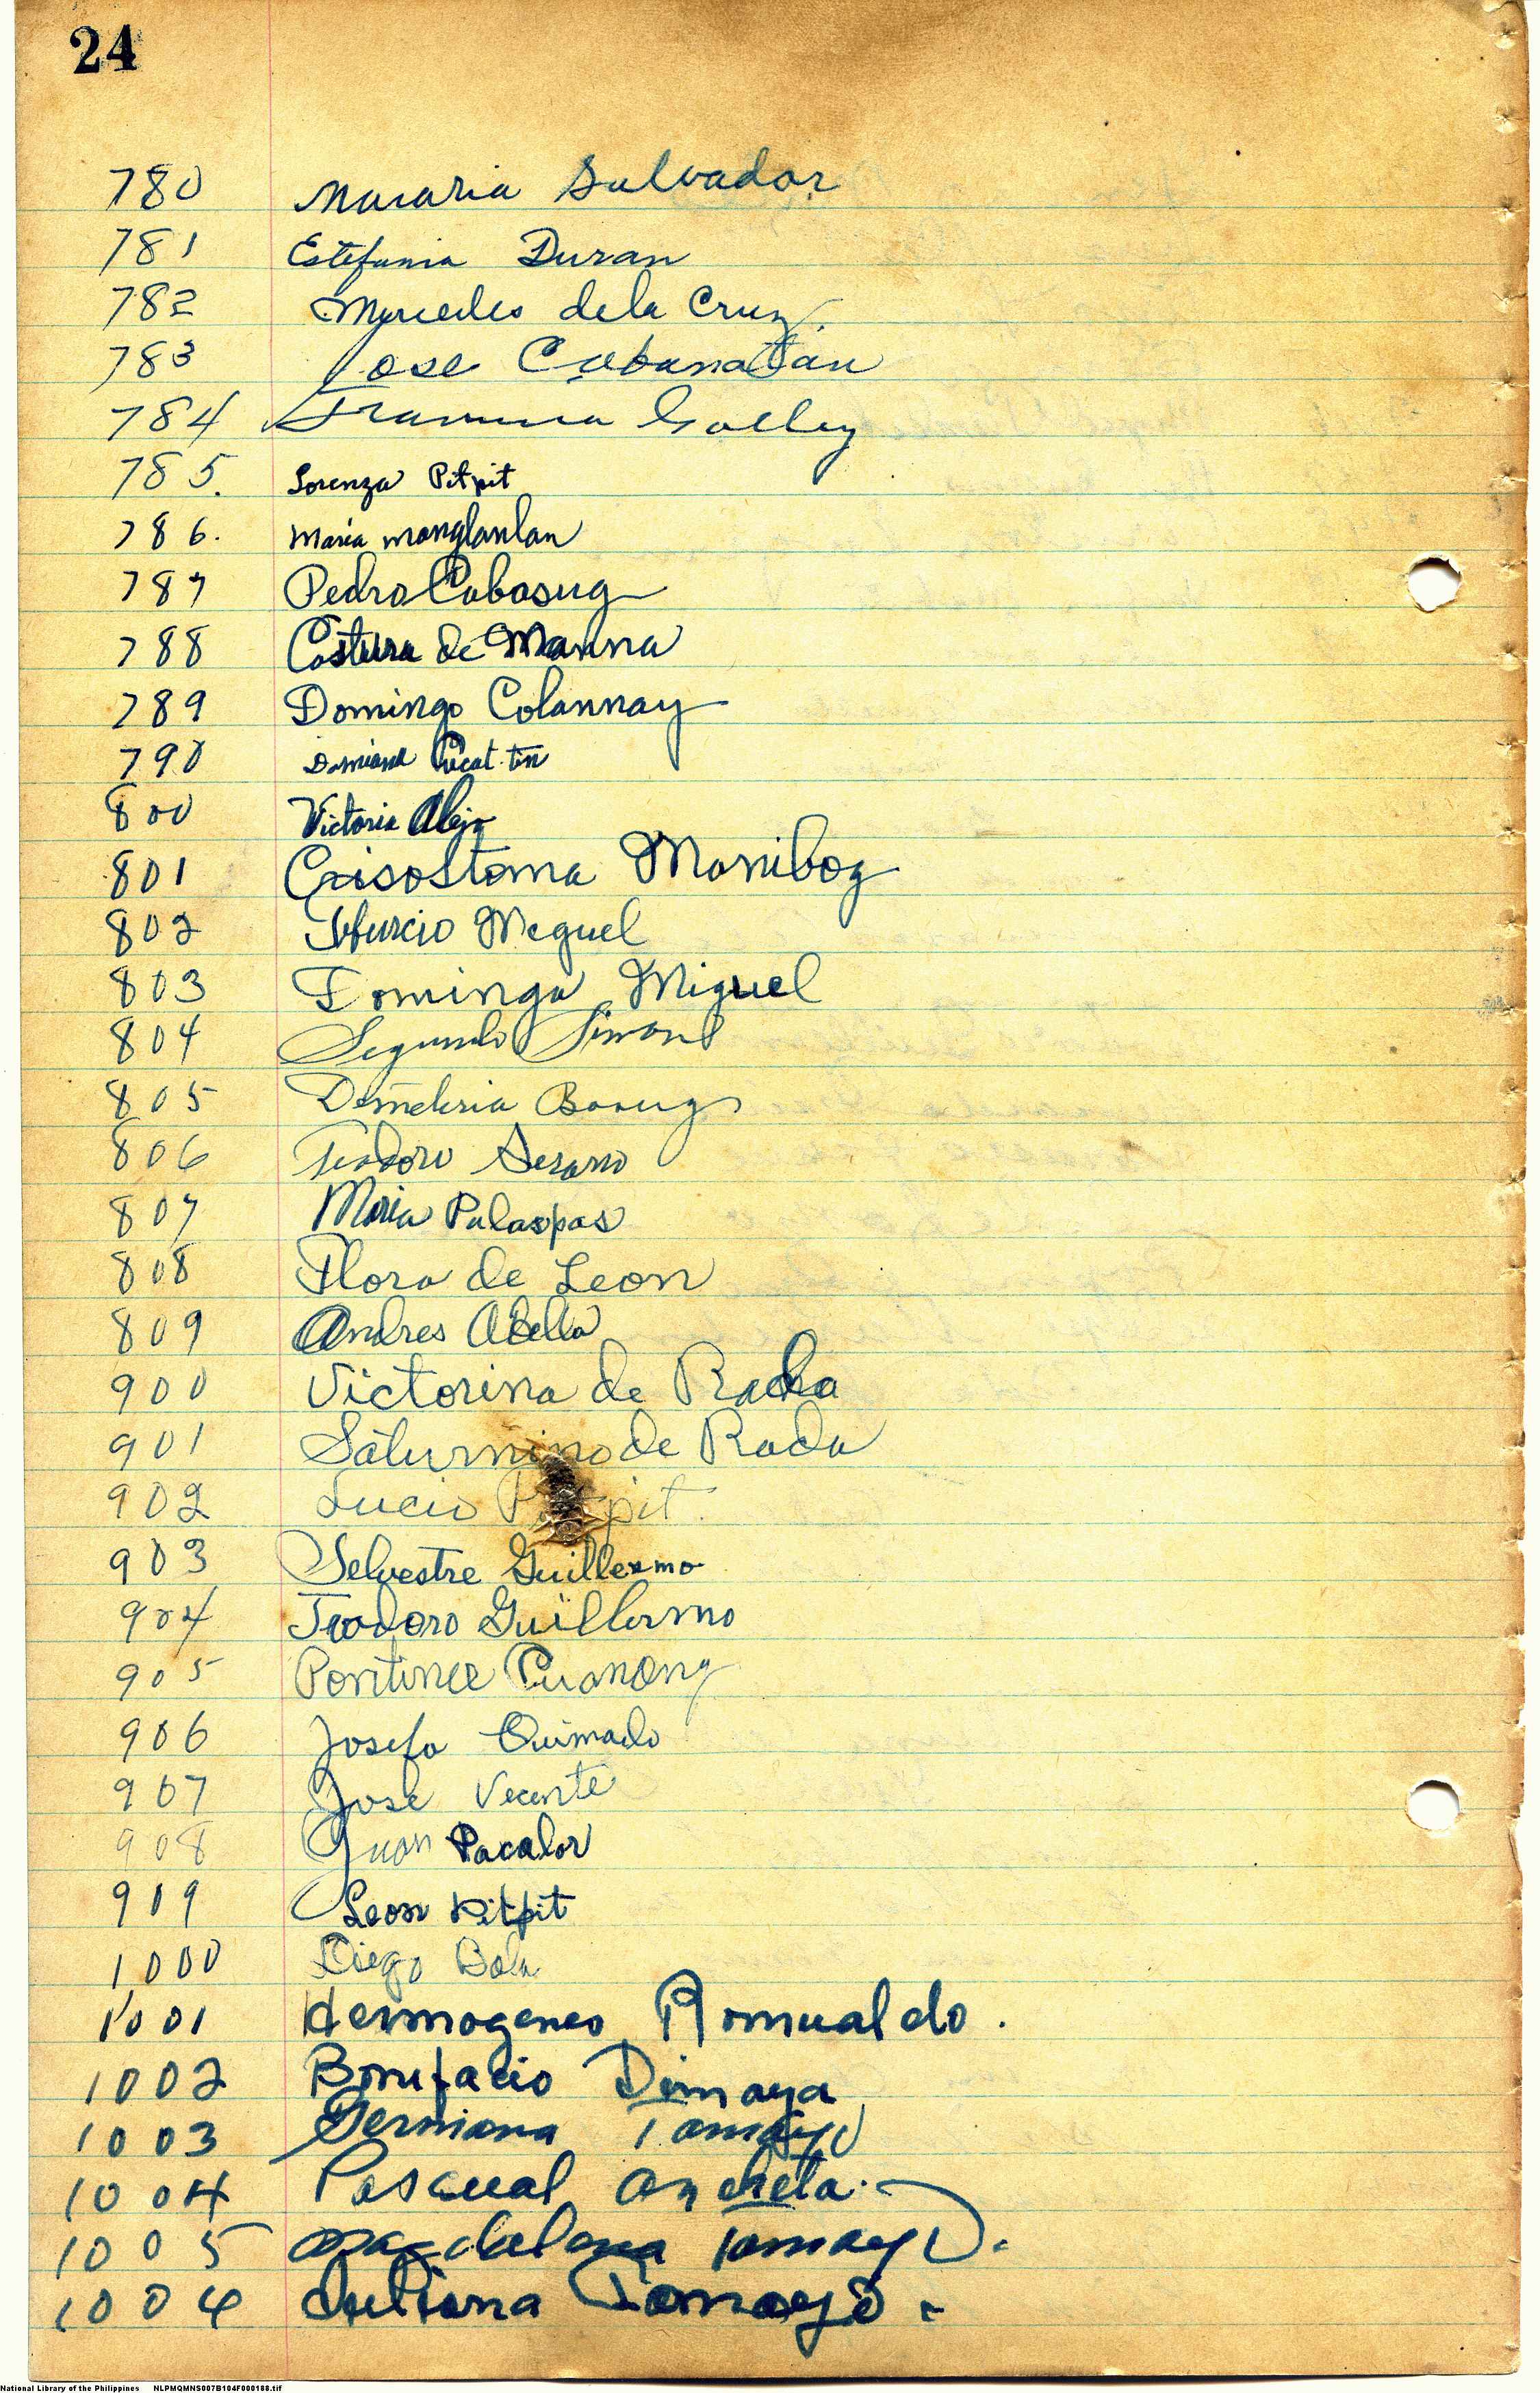 24
780 Macaria Salvador
781 Estefania Duran
782 Mercedes dela Cruz.
783 Jose Cabanatan
784
785. Lorenza Pitpit
786. Maria Manglanlan
787 Pedro Cabasug
788 de Manna
789 Domingo Colannay
790 Damiana
800 Victoria Alejo
801 Crisostoma Manibog
802 Tiburcio Meguel
803 Dominga Miguel
804 Segundo Simon
805 Demetria
806 Teodoro Serano
807 Maria Palaspas
808 Flora de Leon
809 Andres Abella
900 Victorina de Rada
901 Saturnino de Rada
902 Lucio Pitpit.
903 Selvestre Guillermo
904 Teodoro Guillermo
905
906 Josefa Quimado
907 Jose Vecente
908 Juan Pacalor
909 Leon Pitpit
1000 Diego Bala
1001 Hermogenes Romualdo.
1002 Bonifacio Dimaya
1003 Germana Tamayo
1004 Pascual
1005 Magdalena Tamayo.
1006 Juliana Tamayo.
National Library of the Philippines NLPMQMNS007B104F000188.tif